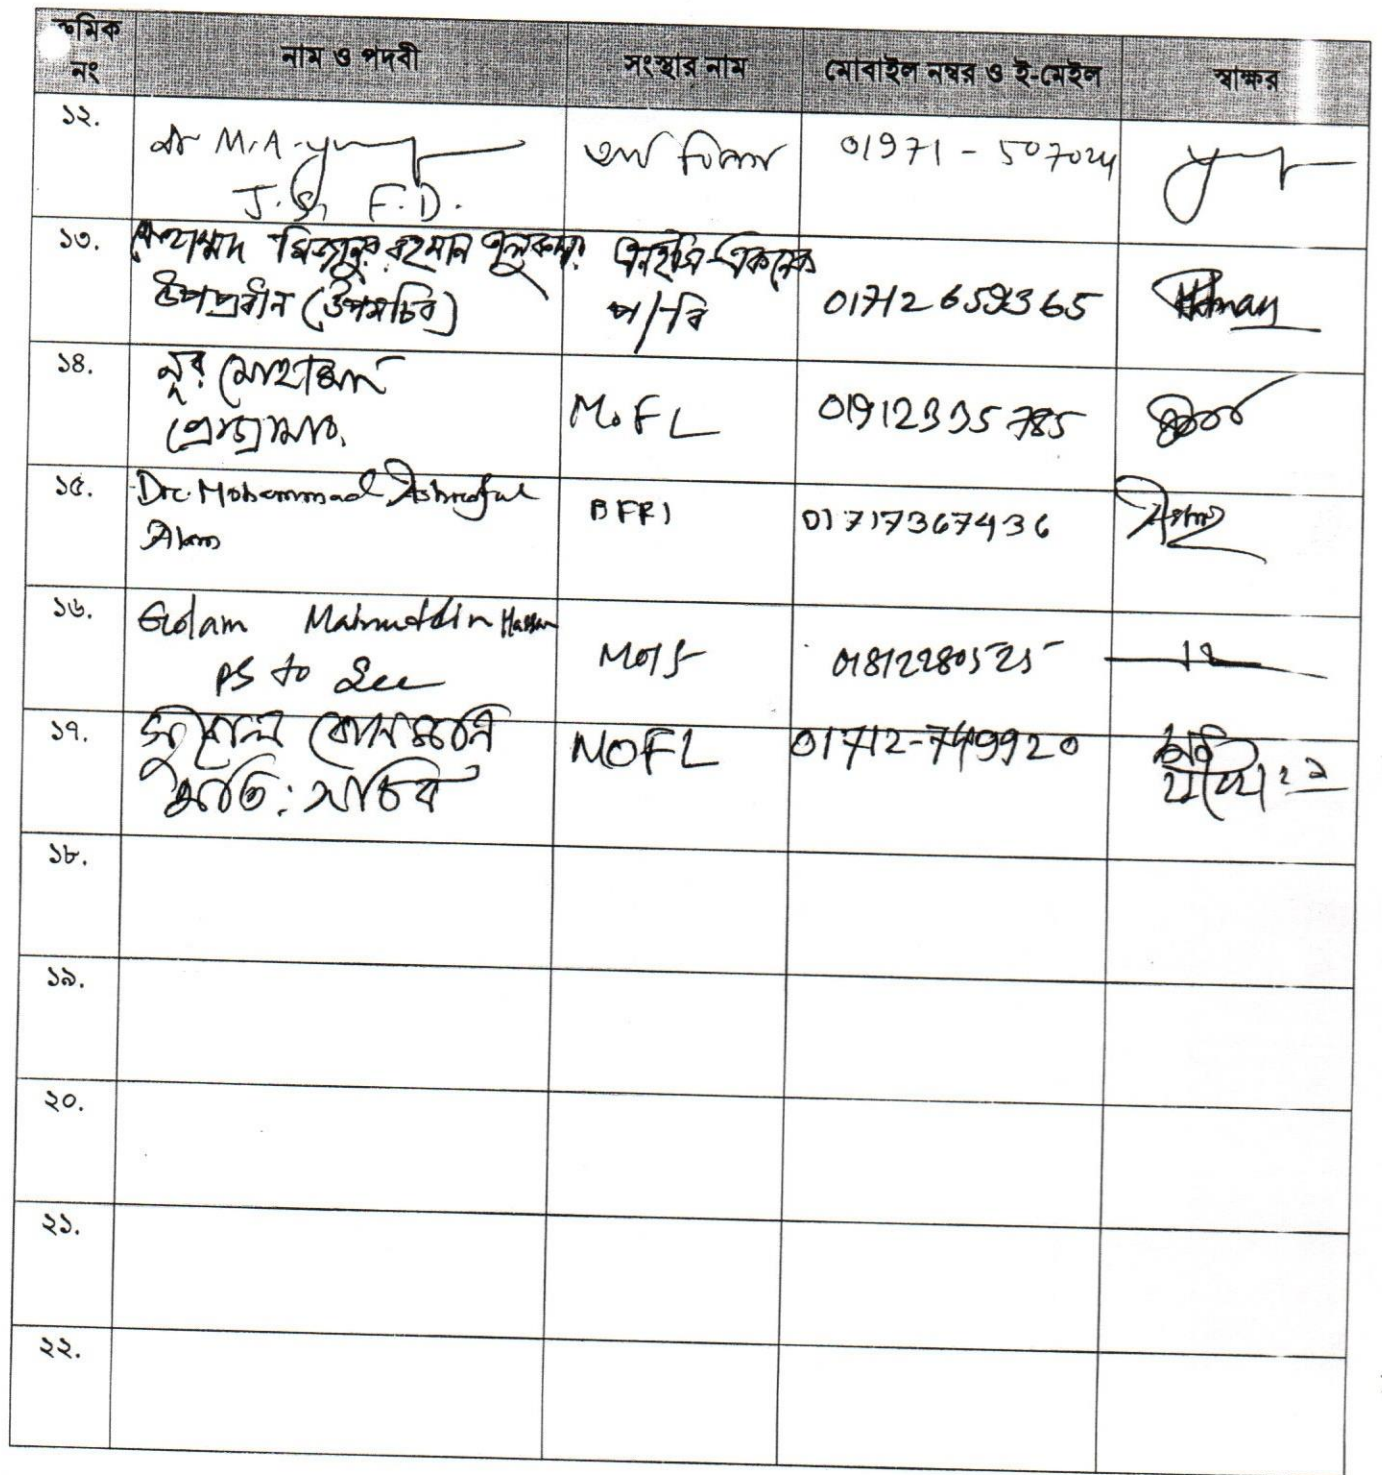 ক্রমিক নং
নাম ও পদবী
সংস্থার নাম
মোবাইল নম্বর ও ই-মেইল
স্বাক্ষর
১২.
Dr M.A.
J.S, F.D.
অর্থ বিভাগ
01971-507024
১৩.
মোহাম্মদ মিজানুর রহমান তালুকদার
উপপ্রধান (উপসচিব)
এনইসি-একনেক
প/বি
01712659365
১৪.
নূর মোহাম্মদ
প্রোগ্রামার.
MoFL
01912335785
১৫.
Dr. Mohammad Ashraful
Alam
BFRI
01717367436
১৬.
Golam Mainuddin Hassan
PS to Sec
01812280525
১৭.
অতি: সচিব
MOFL
01712-749920
১৮.
১৯.
২০.
২১.
২২.